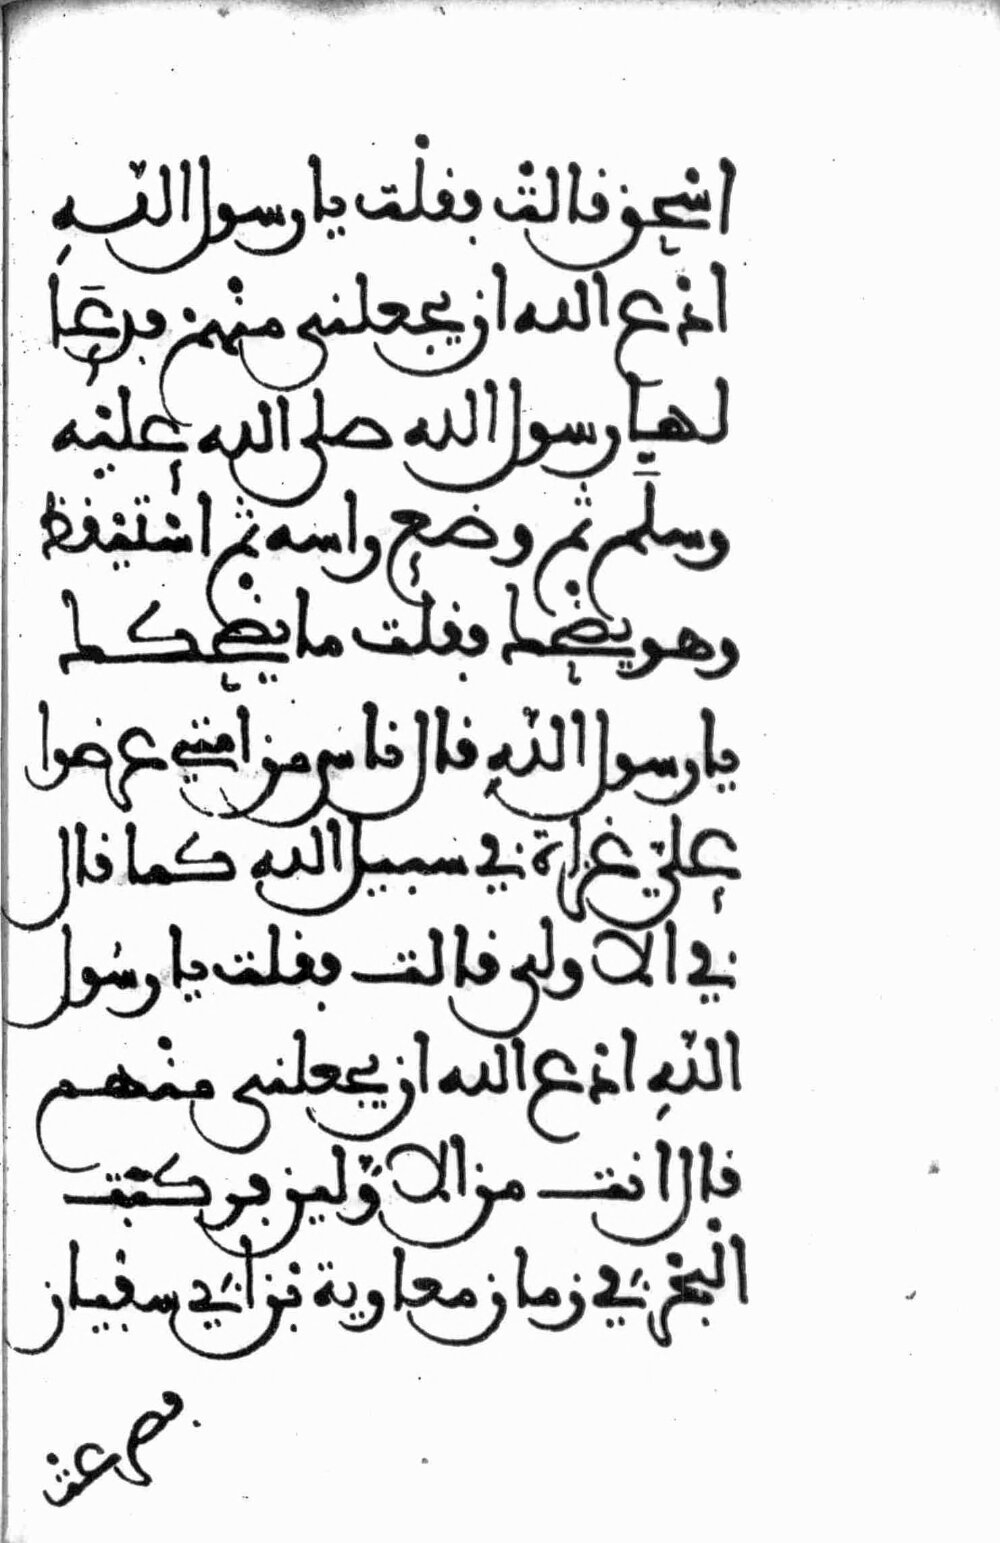 اسْحٰو فالتْ فقلْت يا رسول اللّهِ
ادْع الله ان يجعلنى منْهمْ فدعَا
لها رسول الله صلى الله عليْه
وسلَّم ثمّ وضع راسه ثمّ اسْتيْقظ
وهو يضْحك فقلْت ما يضْحكك
يا رسول اللّهِ قال ناس من امّتي عرضوا
عليّ غزاة في سبيل الله كما قال
في الاولى قالت فقلت يا رسُول
اللّهِ ادْع الله ان يجعلنى منْهم
قال انت من الاوَّلين فركبَت
الْبحْر في زمان معاوية بْن ابَي سفْيان
فصرعتْ